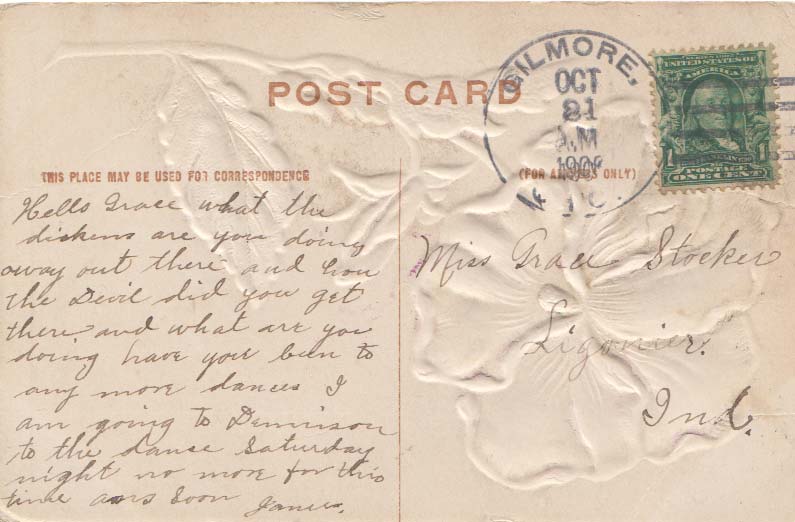 POST CARD
GILMORE,
OCT
21
A.M
1908
UNITED STATES OF
AMERICA
1 1
POSTAGE
ONE CENT
THIS PLACE MAY BE USED FOR CORRESPONDENCE
(FOR ADDRESS ONLY)
Hello Grace what the
dickens are you doing
away out there and how
the Devil did you get
there and what are you
doing have you been to
any more dances I
am going to Dennison
to the dance Saturday
night no more for this
time ans soon
James.
Miss Grace Stocker
Ligonier.
Ind.